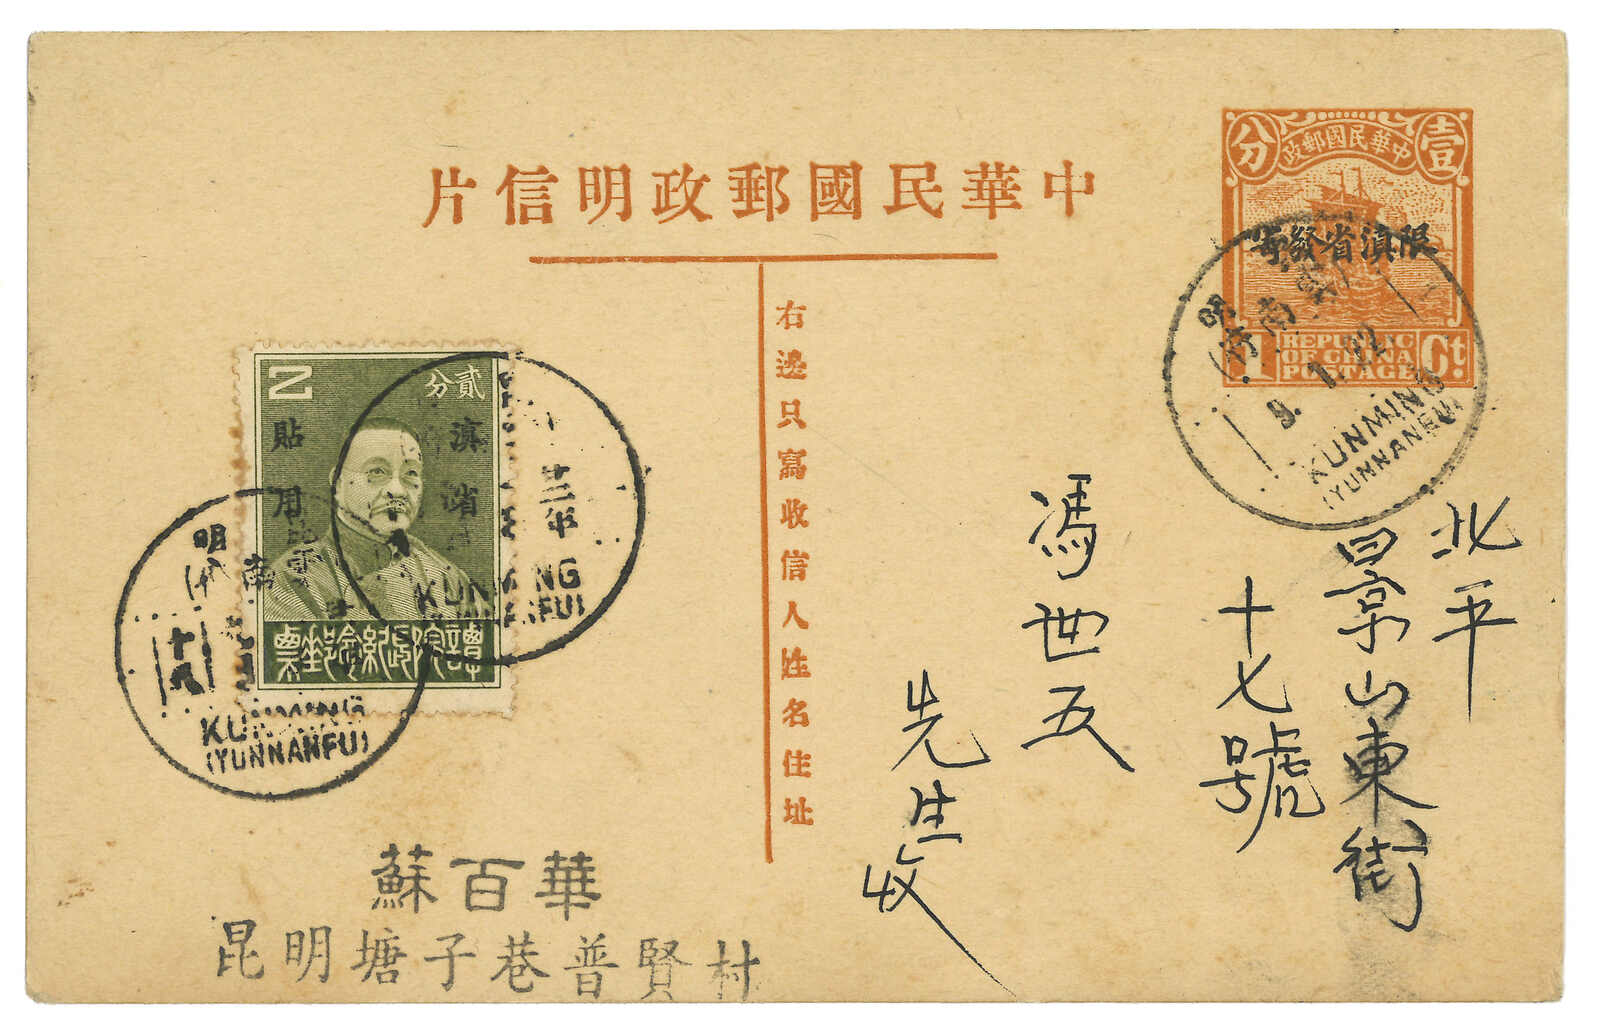 中華民國郵政明信片
壹分
中華民國郵政
限滇省發寄
1 Ct.
REPUBLIC
OF CHINA
POSTAGE
9. 1. 22
KUNMING
(YUNNANFU)
右邊只寫收信人姓名住址
北平
景山東街
十七號
馮世五
先生收
2
貳分
滇省
貼用
譚院長紀念郵票
廿二年
KUNMING
KUNMING
(YUNNANFU)
蘇百華
昆明塘子巷普賢村